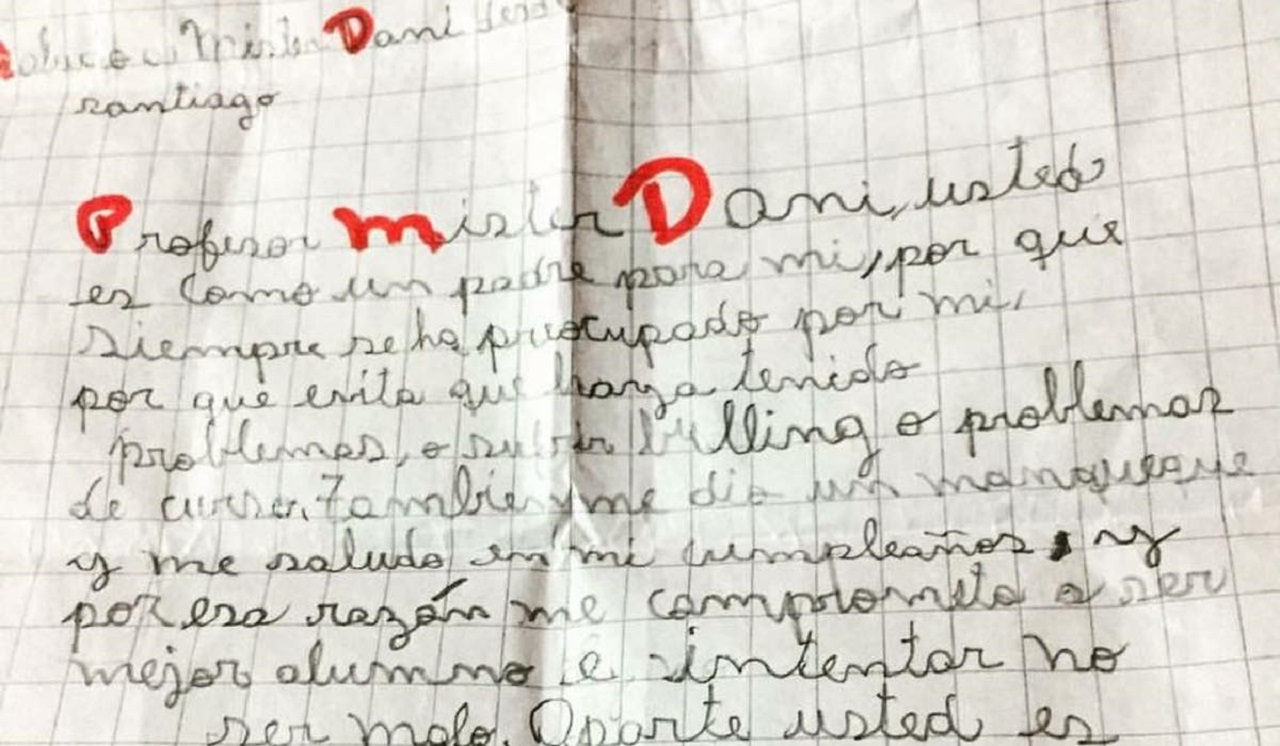 Mister Dani
santiago
Profesor mister Dani, usted
es como un padre para mi, por que
siempre se ha preocupado por mi,
por que evita que haya tenido
problemas, o sufrir bulling o problemas
de curso. Tambien me dio un manqueque
y me saludo en mi cumpleaños, y
por esa razón me comprometo a ser
mejor alumno e intentar no
ser malo. Aparte usted es